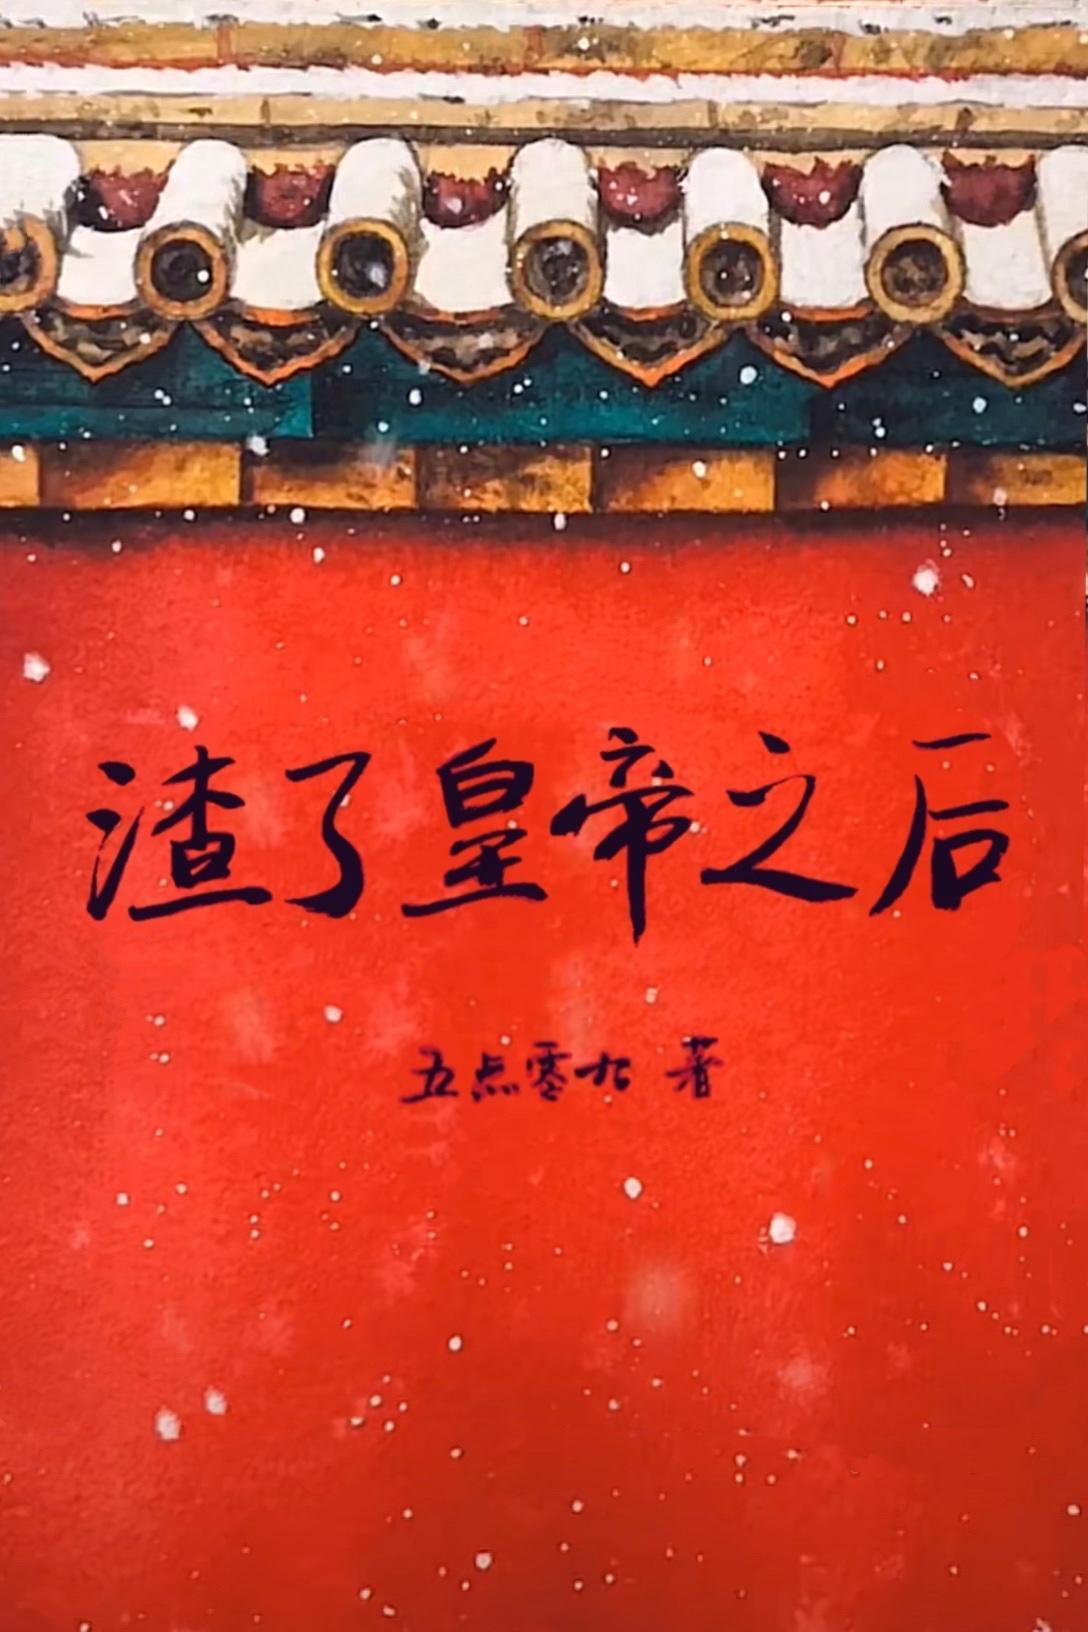 渣了皇帝之后
五点零九 著